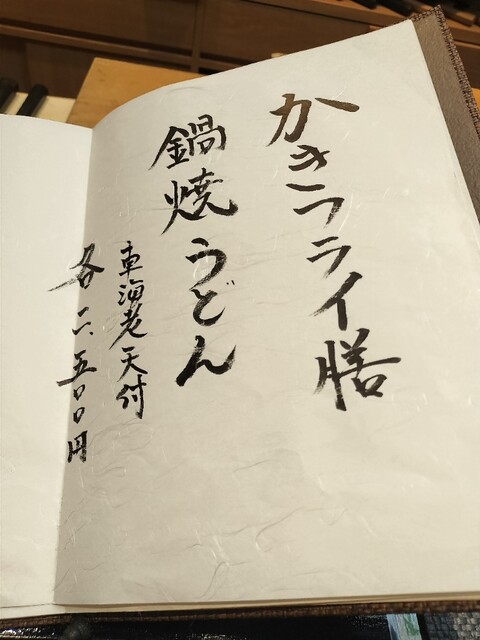 かきフライ膳
鍋焼うどん
車海老天付
各二、五〇〇円